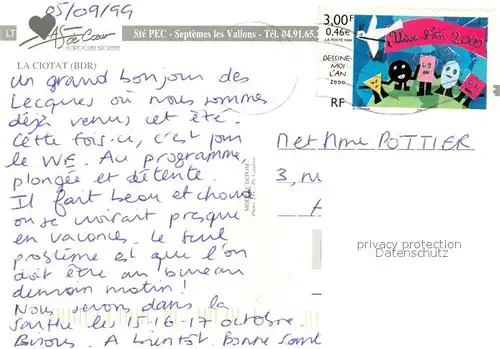 05/09/99
LT
As de Cœur
Sté PEC - Septèmes les Vallons - Tél. 04.91.65.
LA CIOTAT (BDR)
un grand bonjour des
Lecques où nous sommes
déjà venus cet été.
Cette fois-ci, c'est pour
le WE. Au programme
plongée et détente.
Il fait beau et chaud
on se croirait presque
en vacances. Le seul
problème est que l'on
doit être au bureau
demain matin!
Nous serons dans la
Sarthe les 15-16-17 octobre.
Bisous. A bientôt. Bonne Santé
3,00F
0,46€
LA POSTE 1999
Vive l'an 2000
DESSINE-
MOI
L'AN
2000
RF
M et Mme POTTIER
3, ru
privacy protection
Datenschutz